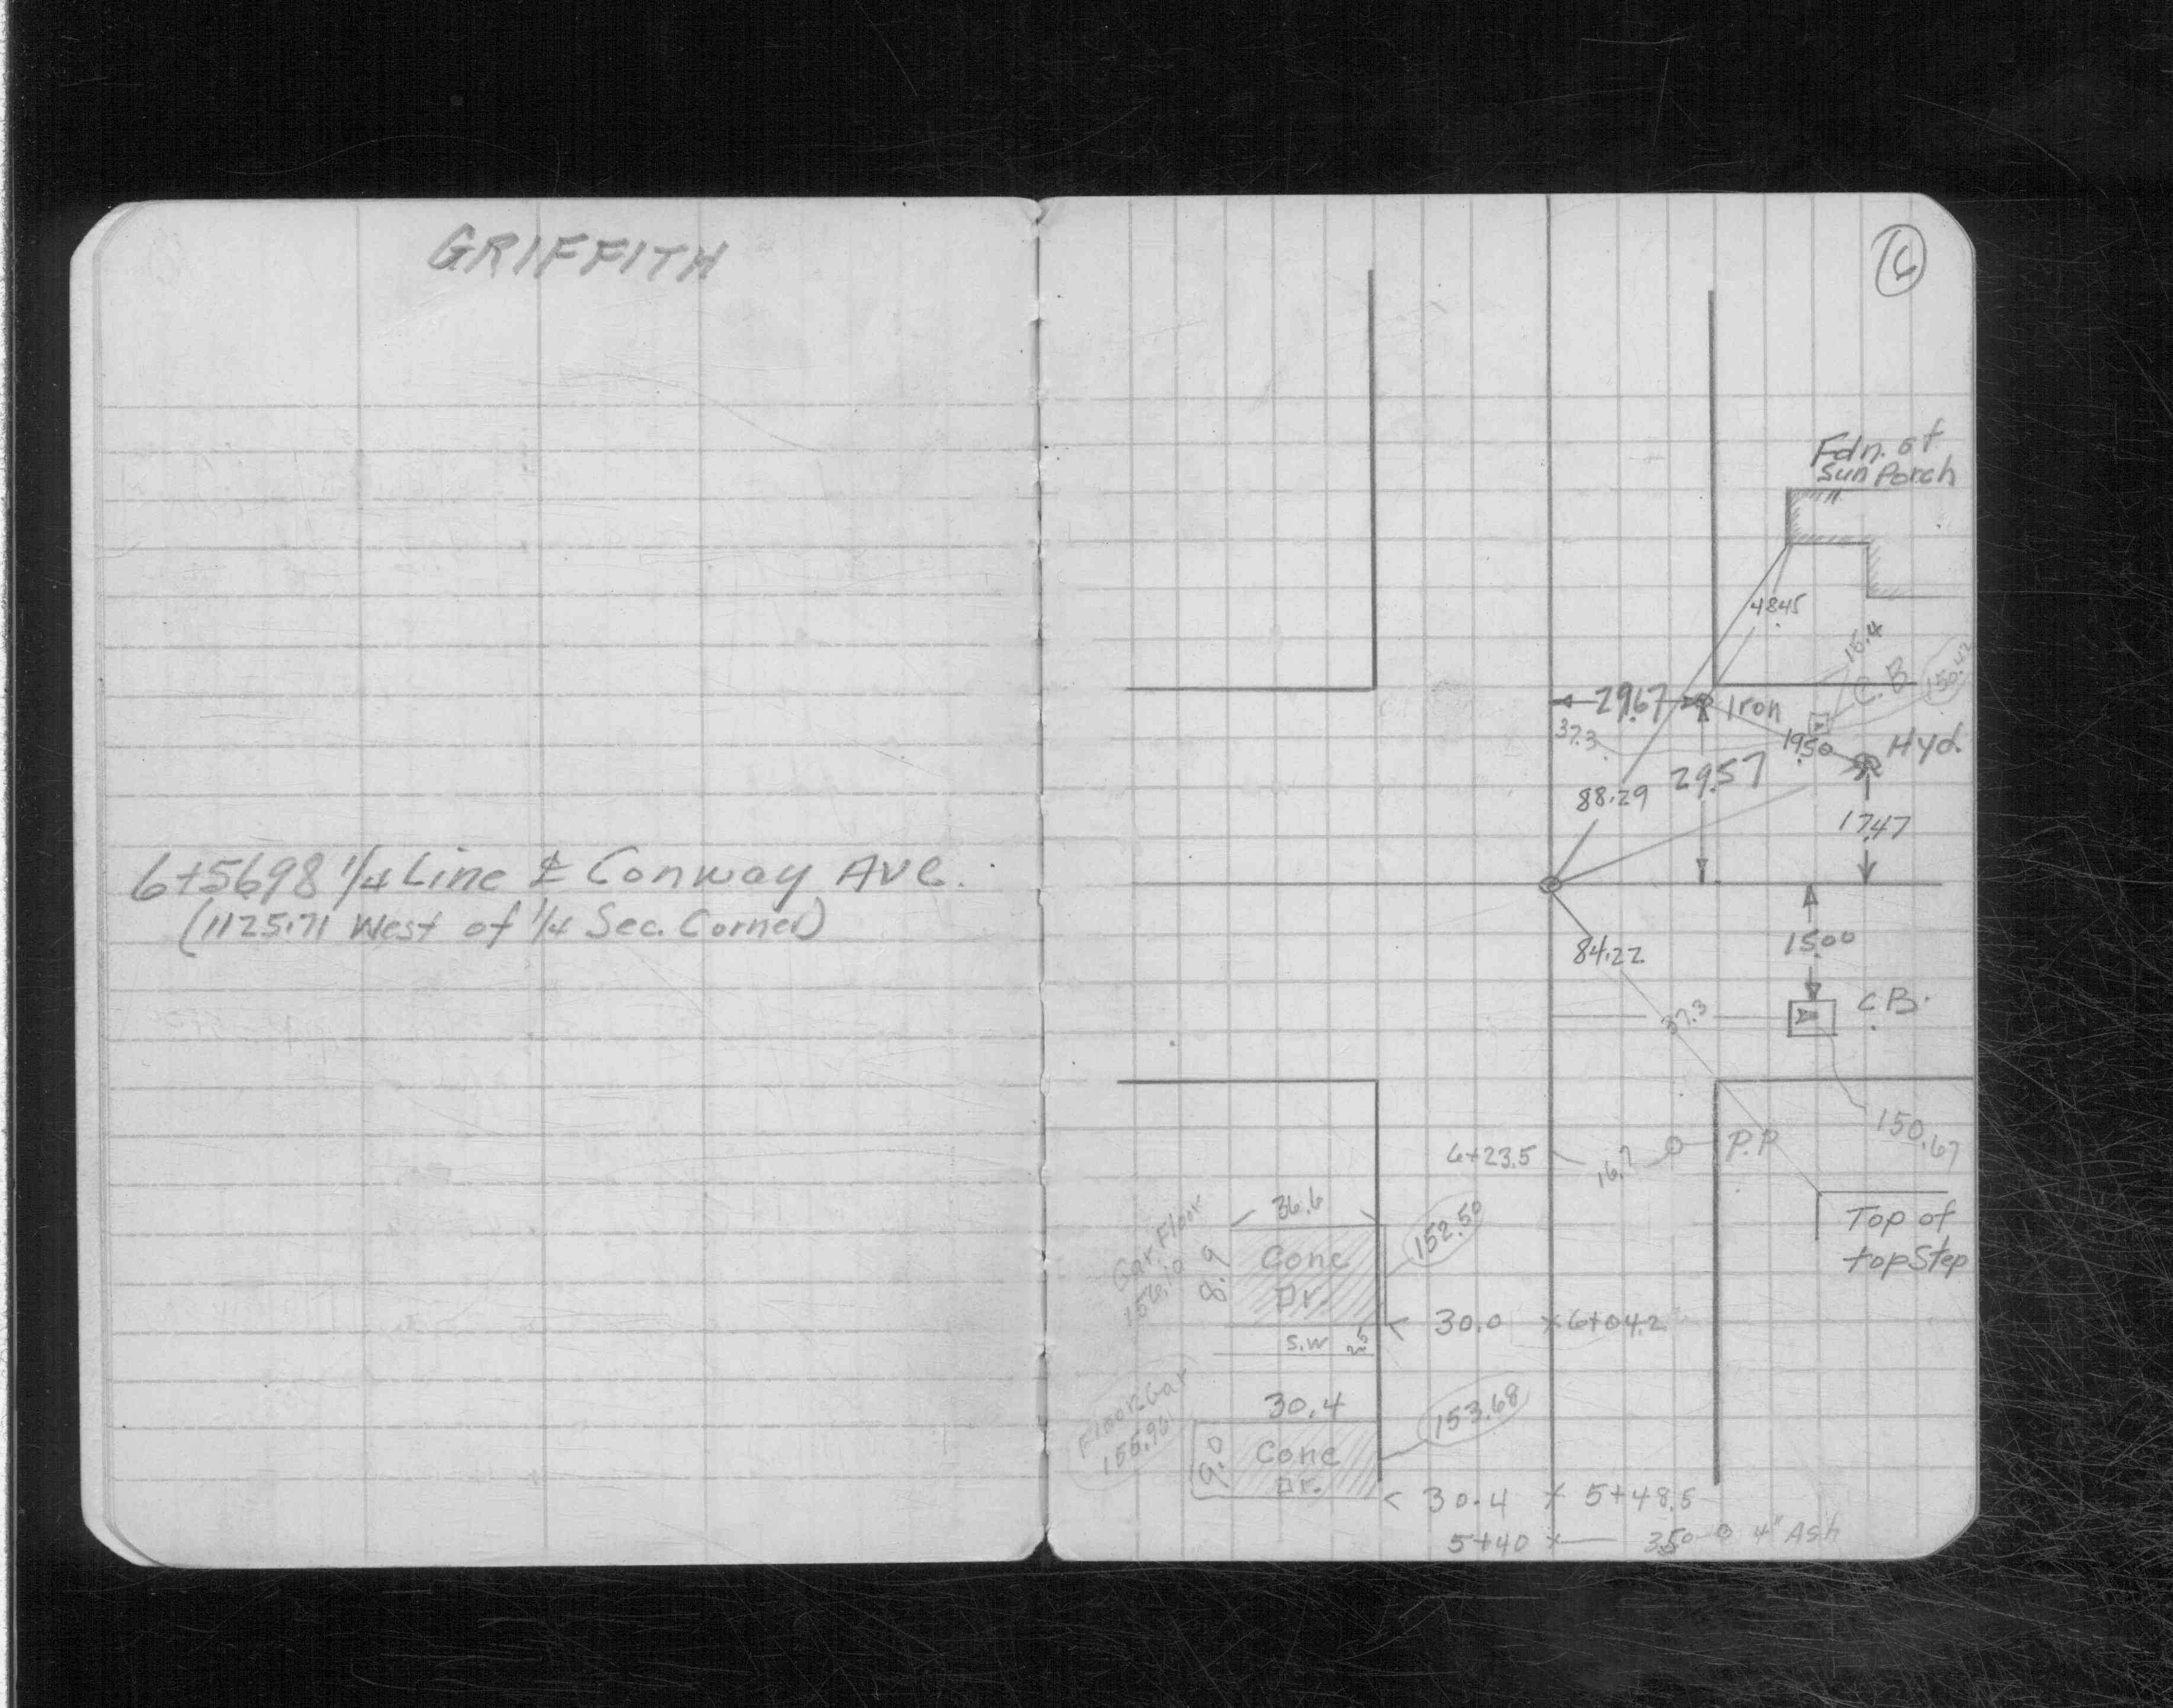 GRIFFITH
6+5698 1/4 Line & Conway Ave.
(1125.71 West of 1/4 Sec. Corner)
6
Fdn. of
Sun Porch
48.45
16.4
C.B
150.42
29.67
Iron
37.3
19.50
Hyd.
29.57
88.29
17.47
84.22
15.00
C.B.
37.3
150.67
6+23.5
16.7
P.P
Top of
top Step
36.6
152.50
Gar. Floor
156.10
8.9
Conc
Dr.
30.0 x 6+04.2
S.W 2.5
30.4
153.68
Floor Gar
155.96
9.0
Conc
Dr.
30.4 x 5+48.5
5+40 x 35.0 4" Ash